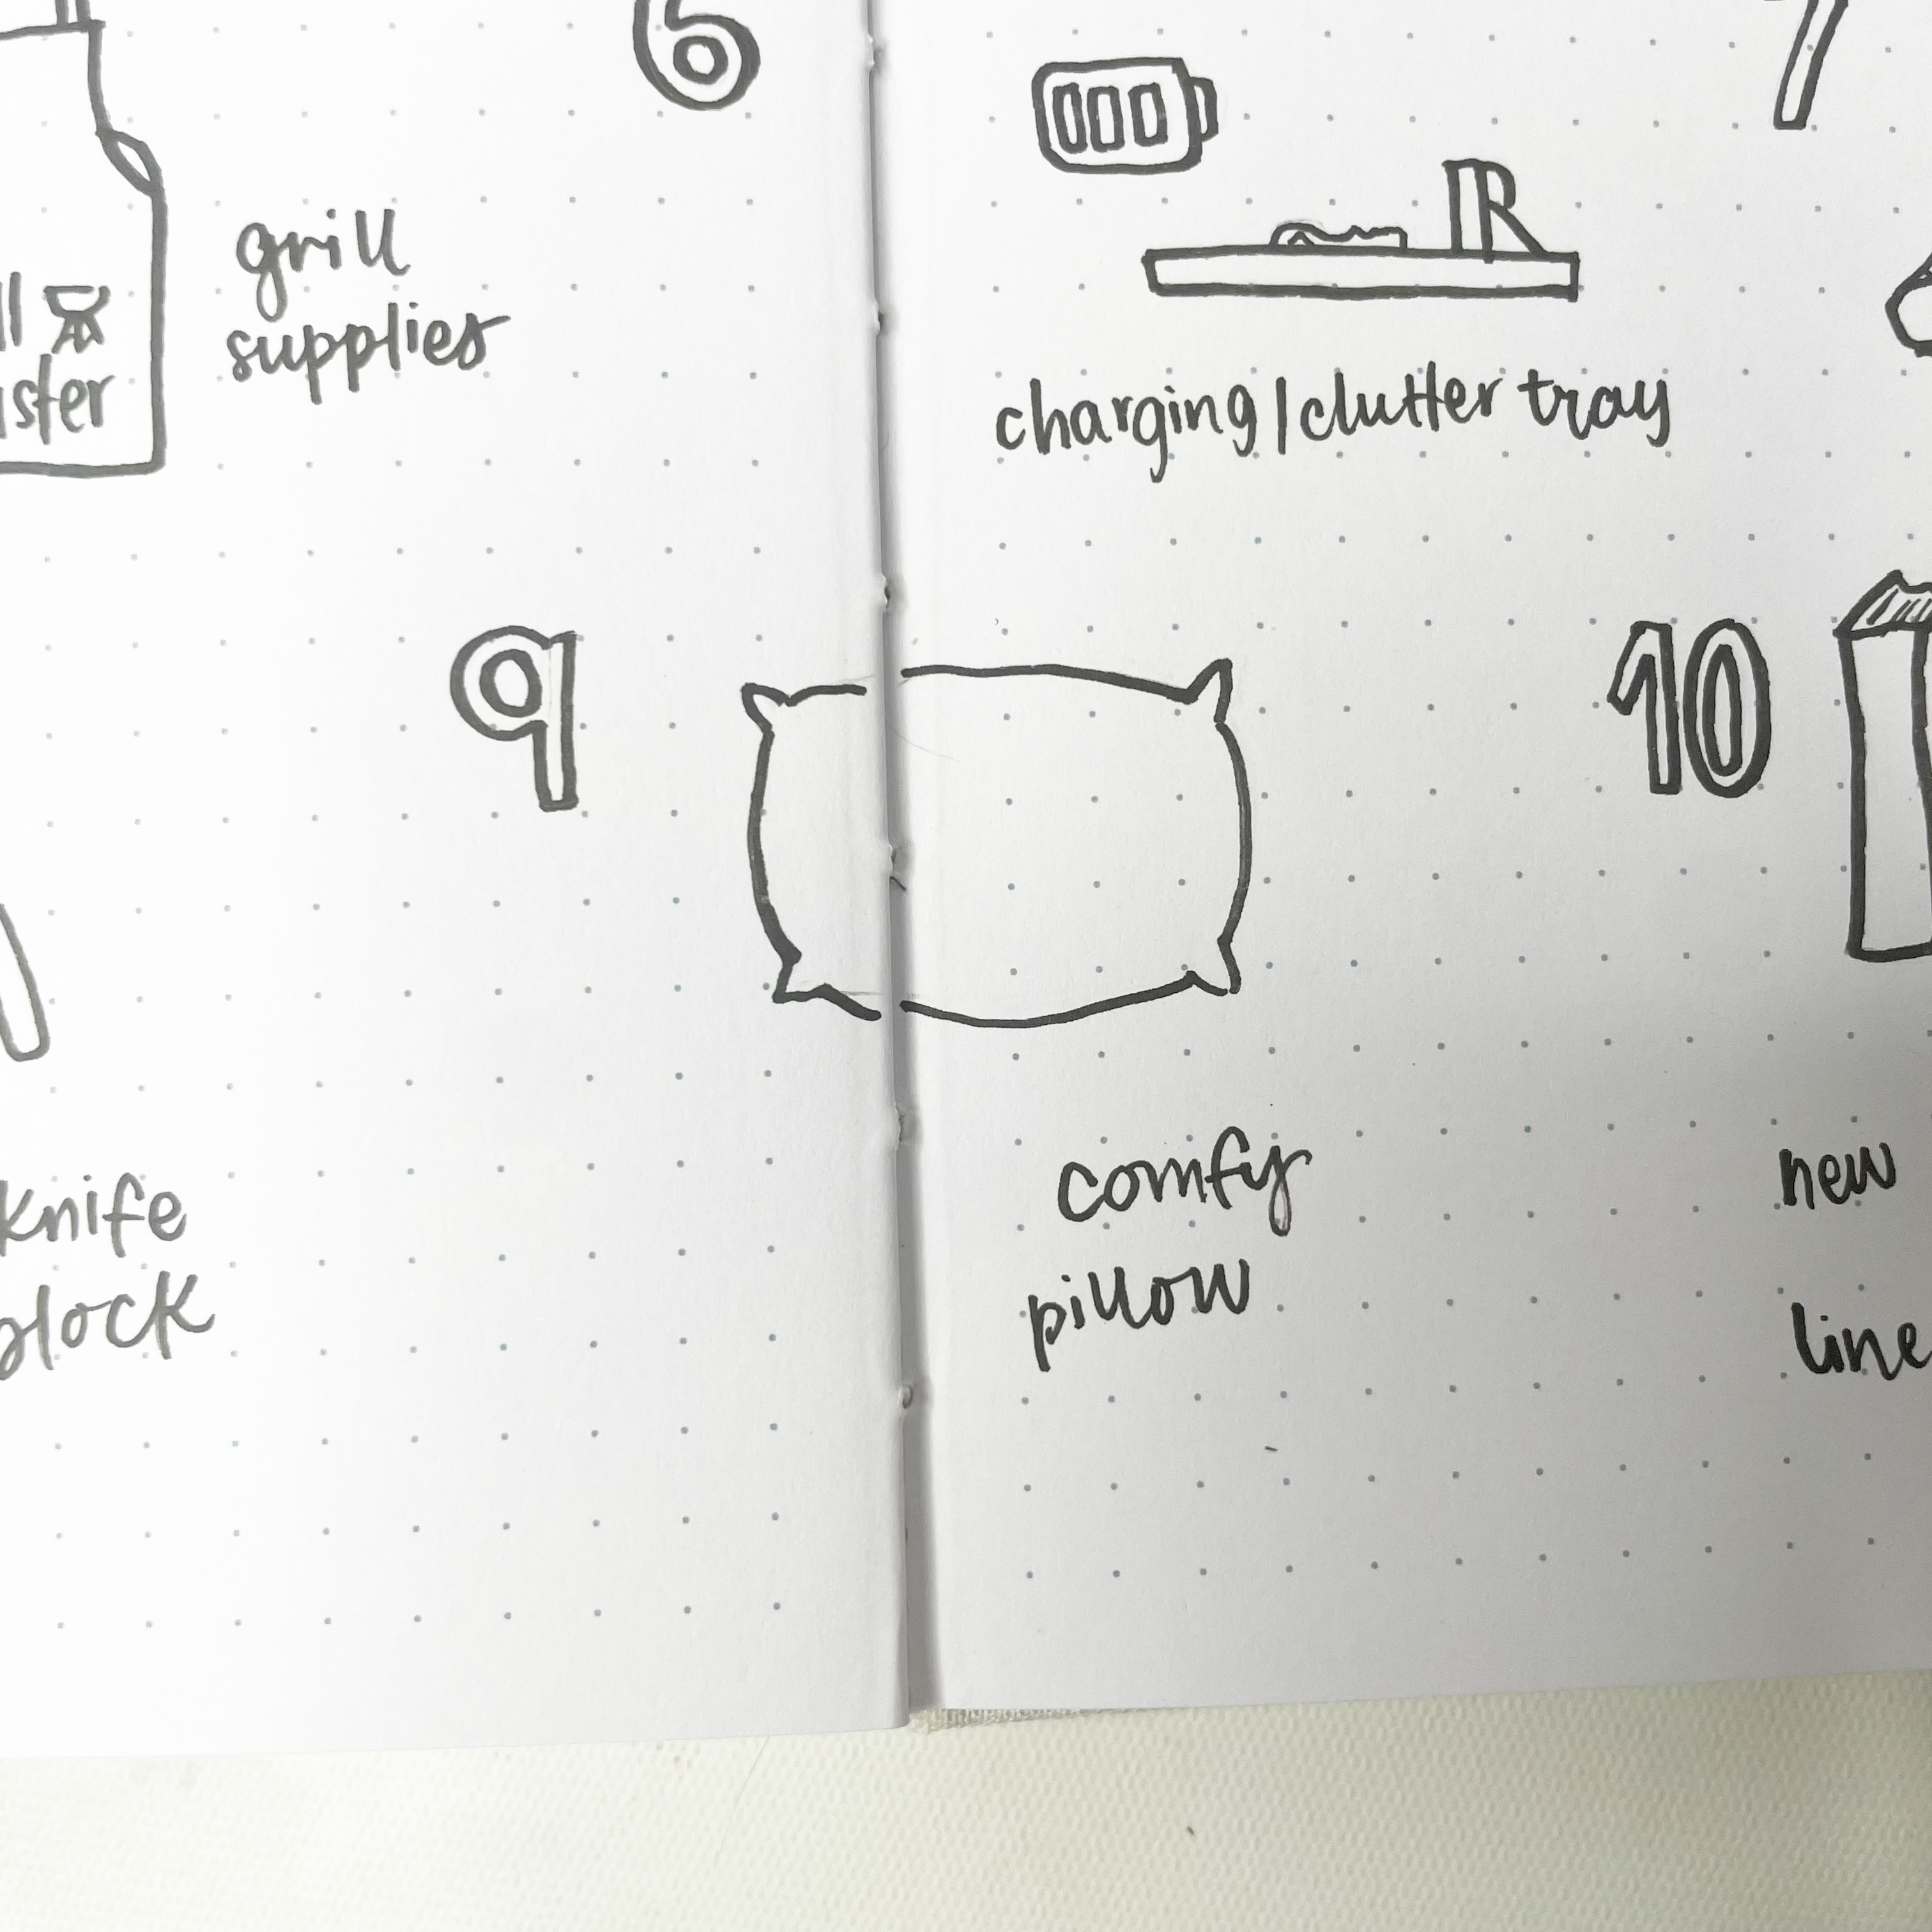 6
7
grill
supplies
charging/clutter tray
9
10
knife
block
comfy
pillow
new
line